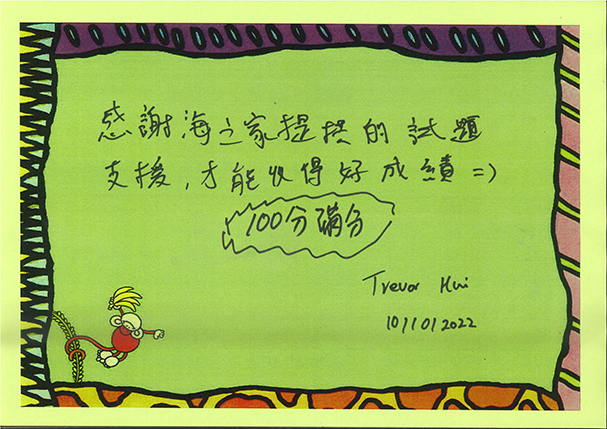 感謝海之家提供的試題
支援,才能收得好成績=)
100分滿分
Trevor Hui
10/10/2022